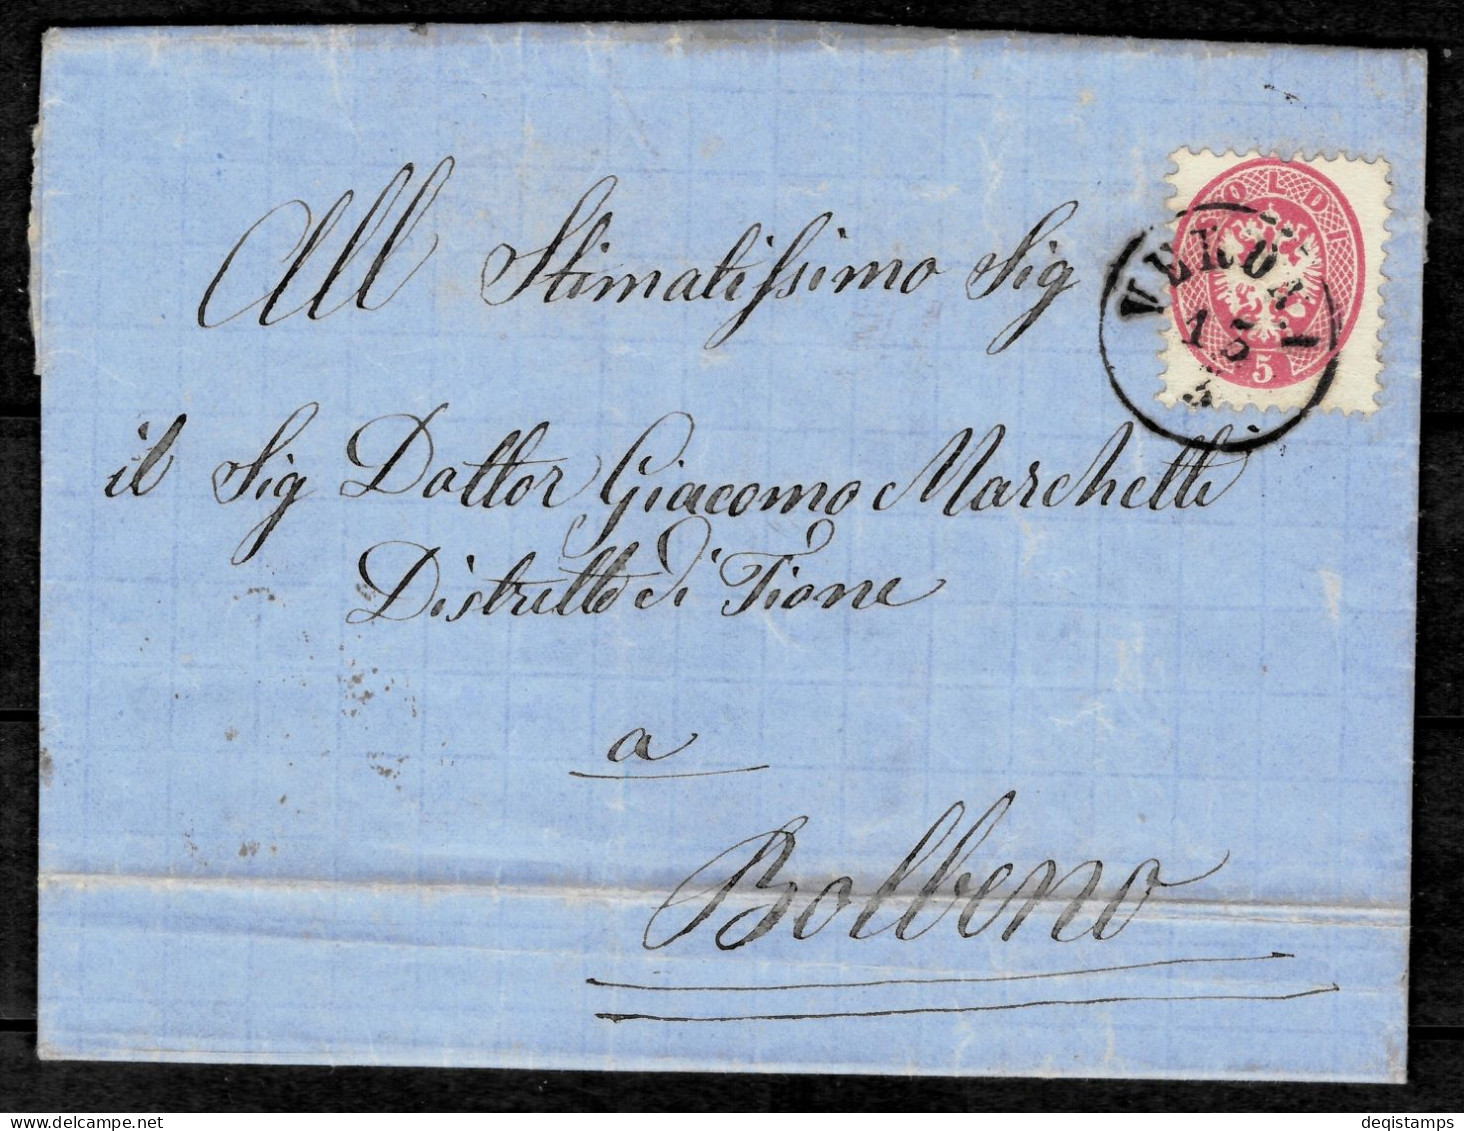 All Stimatissimo Sig
il Sig Dottor Giacomo Marchetti
Distretto di Tione
a
Bolbeno
SOLDI
5
VERONA
15
3
deqistamps